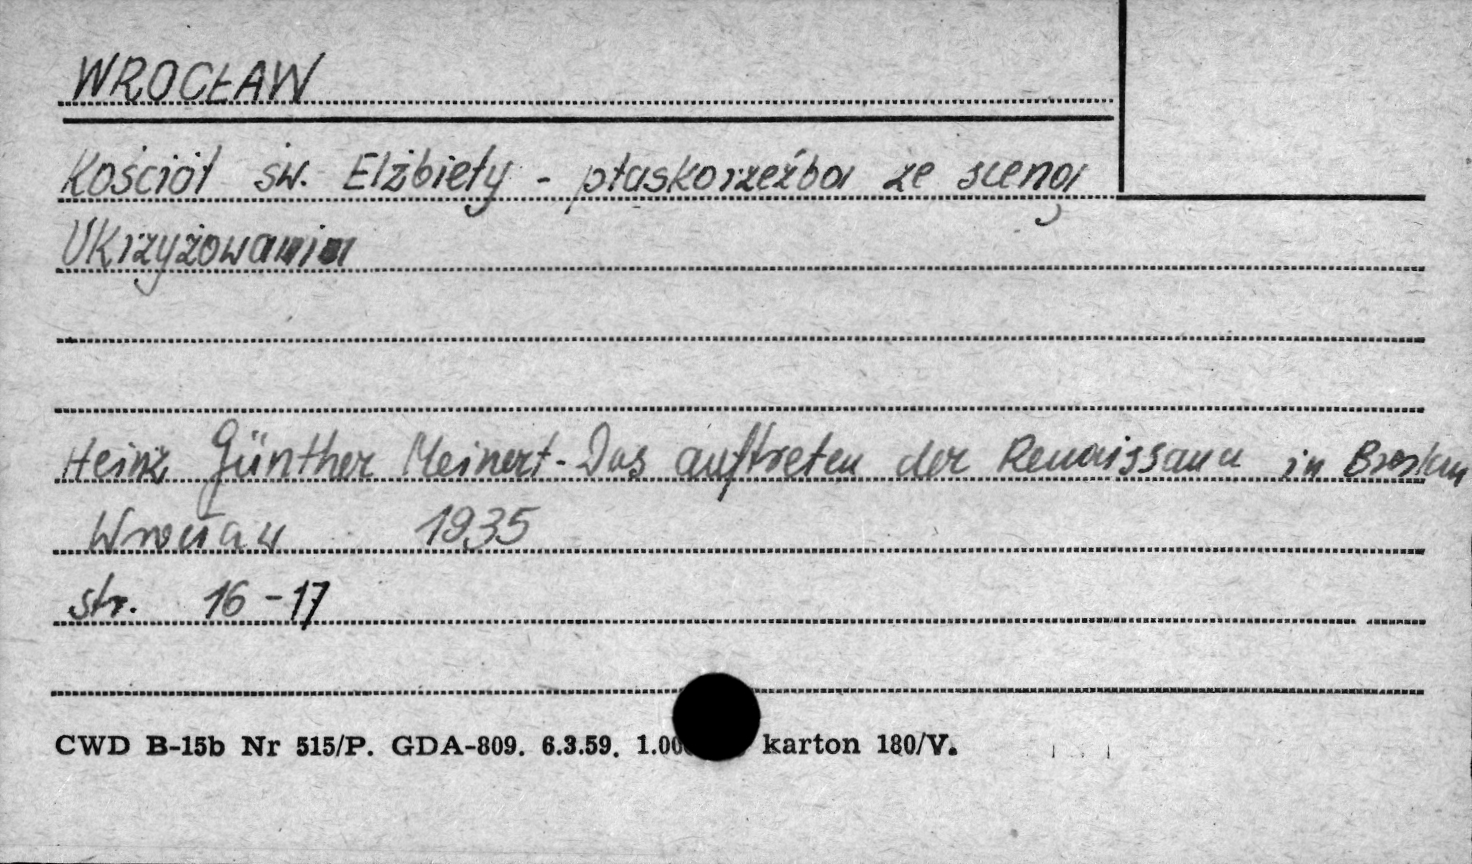 WROCŁAW
Kościół św. Elżbiety - płaskorzeźba ze sceną
Ukrzyżowania
Heinz Günther Meinert - Das auftreten der Renaissance in Breslau
Wrocław 1935
str. 16-17
CWD B-15b Nr 515/P. GDA-809. 6.3.59. karton 180/V.